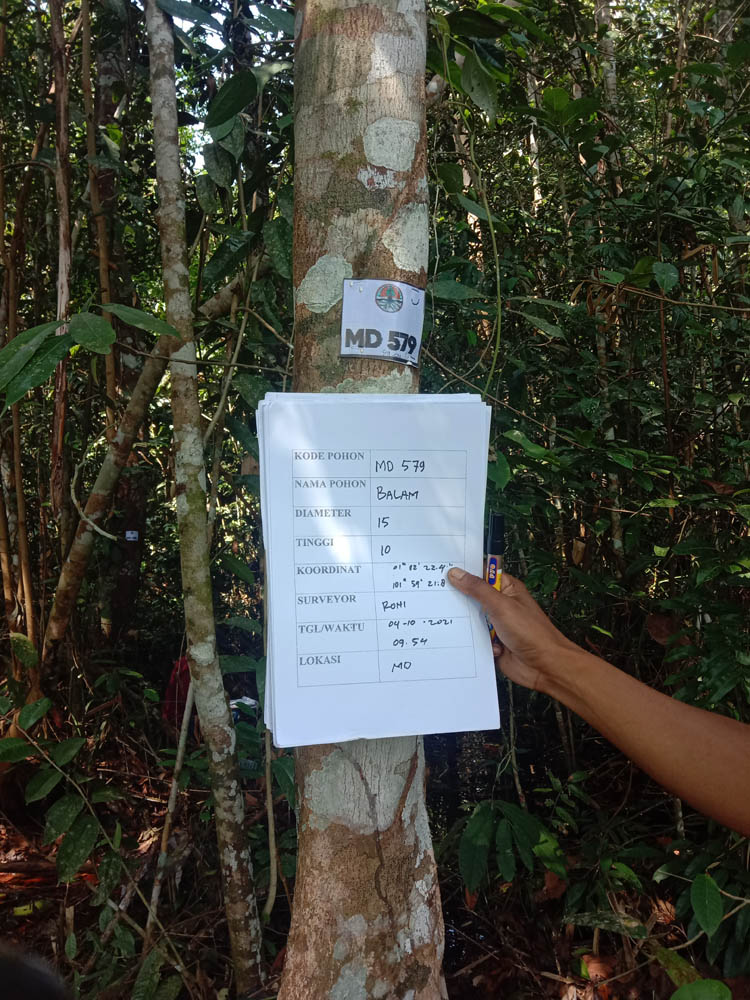 MD 579
KODE POHON MD 579
NAMA POHON BALAM
DIAMETER 15
TINGGI 10
KOORDINAT 01° 82' 22.4"
101° 59' 21.8
SURVEYOR RONI
TGL/WAKTU 04-10-2021
09.54
LOKASI MD